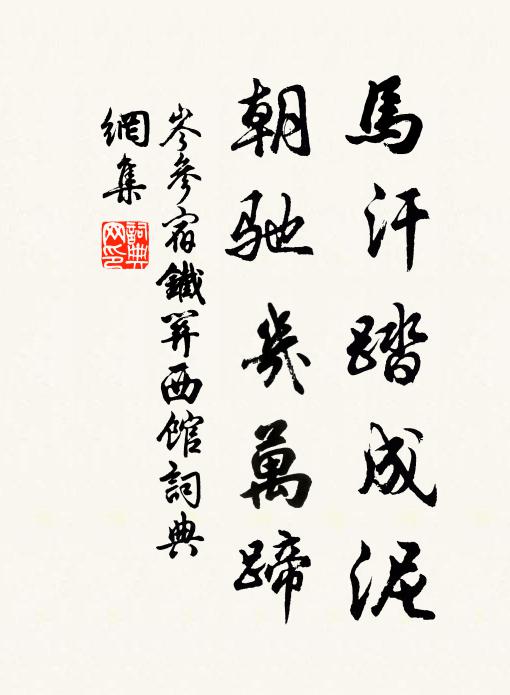 馬汗踏成泥
朝馳幾萬蹄
岑參宿鐵關西館詞典
網集
詞典
网印